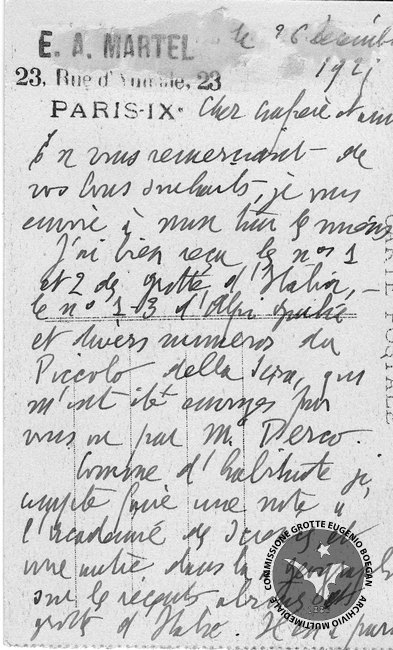 E. A. MARTEL
23, Rue d'Aumale, 23
PARIS-IXᵉ
le 26 décemb
192
Cher confrère et ami
En vous remerciant de
vos bons souhaits, je vous
envoie à mon tour les miens
J'ai bien reçu les nos 1
et 2 de grotte d'Italia, –
le no 1-3 d'Alpi Giulie
et divers numéros du
Piccolo della Sera, qui
m'ont été envoyés par
vous ou par M. Perco.
Comme d'habitude je
compte faire une note à
l'académie de Sciences et
une autre dans la
sur les récents
grottes d'Italie. Il n'a
CARTE POSTALE
COMMISSIONE GROTTE EUGENIO BOEGAN
ARCHIVIO MULTIMEDIALE